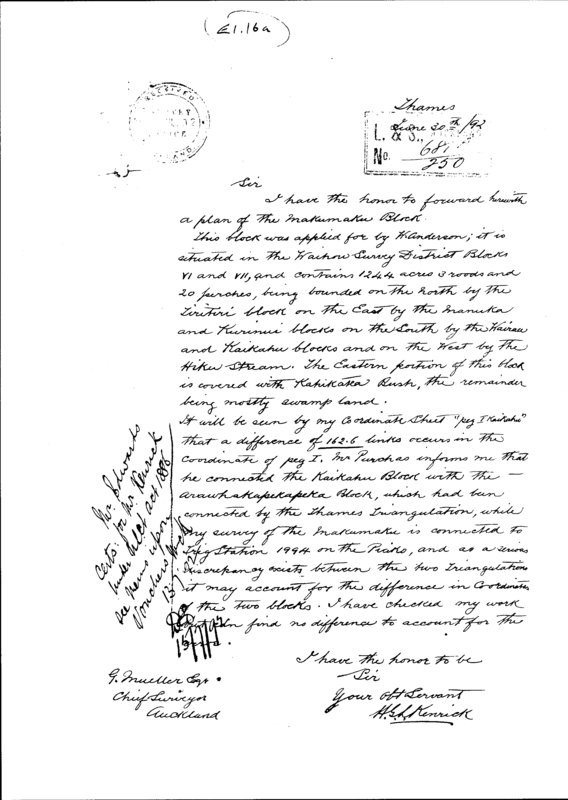 E1.16a
RECEIVED
Thames
June 30th/92
L. & S.
No. 687
250
Sir
I have the honor to forward herewith
a plan of the Makumaku Block.
This block was applied for by W. Anderson; it is
situated in the Waihou Survey District Blocks
VI and VII, and contains 1244 acres 3 roods and
20 perches, being bounded on the North by the
Tiritiri block on the East by the Manuka
and Kurinui blocks on the South by the Wairau
and Kaikahu blocks and on the West by the
Hiku Stream. The Eastern portion of this block
is covered with Kahikatea Bush, the remainder
being mostly swamp land.
It will be seen by my Coordinate Sheet "peg I Kaikahu"
that a difference of 162.6 links occurs in the
Coordinate of peg I. Mr Purchas informs me that
he connected the Kaikahu Block with the –
Arawhakapekapeka Block, which had been
connected by the Thames Triangulation, while
my survey of the Makumaku is connected to
Trig Station 1994 on the Peaks, and as a serious
discrepancy exists between the two Triangulations
it may account for the difference in Coordinates
of the two blocks. I have checked my work
but can find no difference to account for the
I have the honor to be
Sir
Your Obt Servant
H.E.L. Kenrick
G. Mueller Esqr.
Chief Surveyor
Auckland
Mr. Edwards
Certs. for Mr Kenrick
under Act 1886
see memo upon
Vouchers